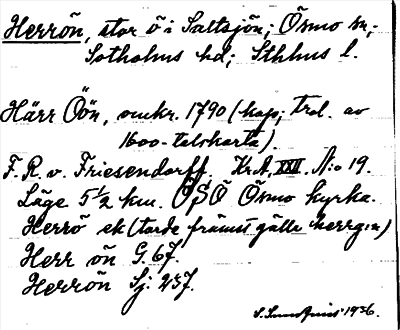 Herrön, stor ö i Saltsjön; Ösmo sn;
Sotholms hd; Sthlms l.
Härr Öön, omkr. 1790 (kop. trol. av
1600-talskarta).
F. R. v. Friesendorff. Kr.A. XXII. N:o 19.
Läge 5½ km. OSO Ösmo kyrka.
Herrö ek (torde främst gälla herrg:n)
Herr ön G. 67.
Herrön Sj. 257.
1936.